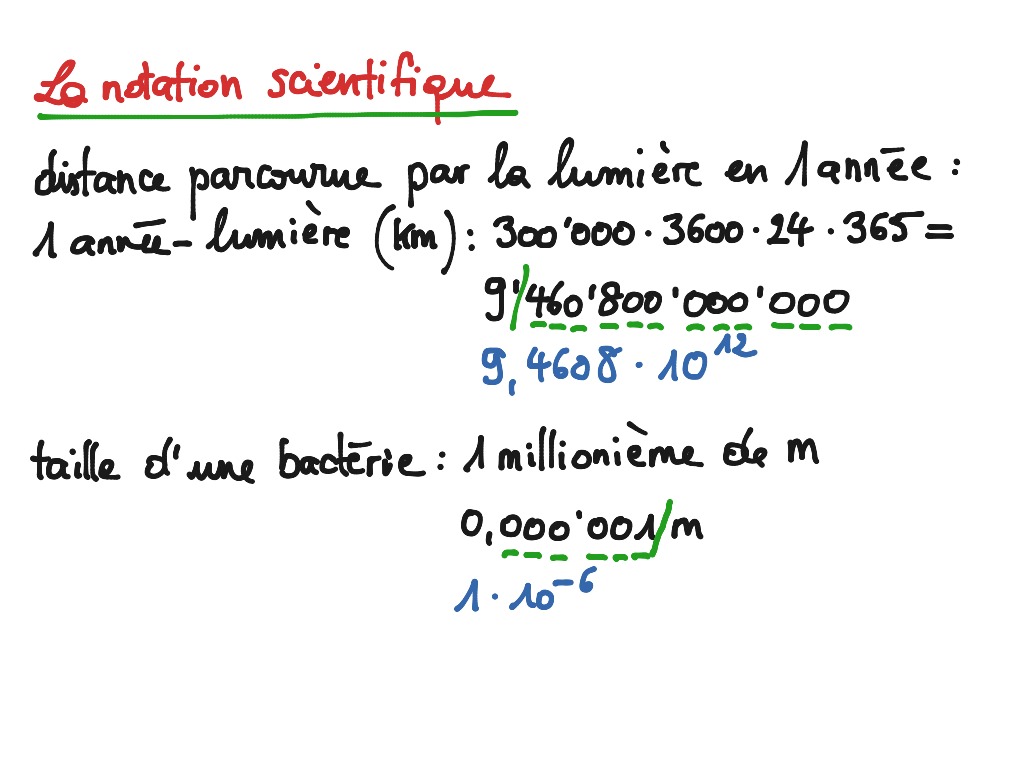 La notation scientifique
distance parcourue par la lumière en 1 année :
1 année-lumière (km) : 300'000 · 3600 · 24 · 365 =
9'460'800'000'000
9,4608 · 10¹²
taille d'une bactérie : 1 millionième de m
0,000'001 m
1 · 10⁻⁶